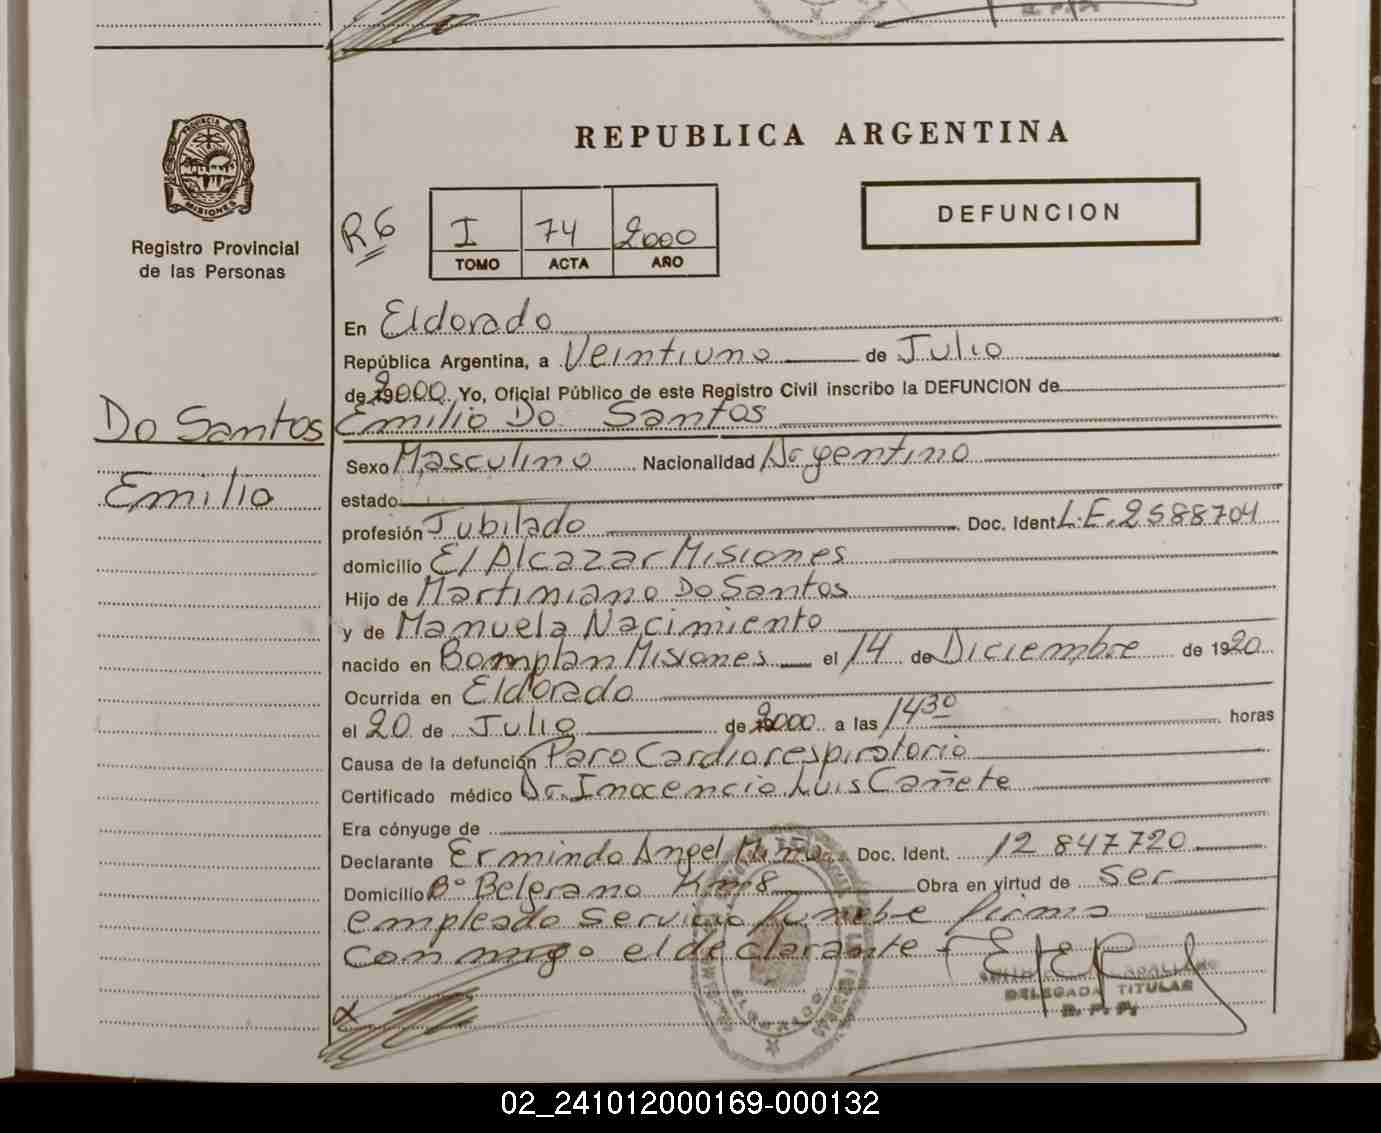 REPUBLICA ARGENTINA
PROVINCIA D
MISIONES
Registro Provincial
de las Personas
R6
I 74 2000
TOMO ACTA AÑO
DEFUNCION
En Eldorado
República Argentina, a Veintiuno de Julio
de 2000 Yo, Oficial Público de este Registro Civil inscribo la DEFUNCION de
Do Santos
Emilio
Emilio Do Santos
Sexo Masculino Nacionalidad Argentino
estado
profesión Jubilado Doc. Ident. L.E. 2588704
domicilio El Alcazar Misiones
Hijo de Martiniano Do Santos
y de Manuela Nacimiento
nacido en Bomplan Misiones el 14 de Diciembre de 1920
Ocurrida en Eldorado
el 20 de Julio de 2000 a las 14 30 horas
Causa de la defunción Paro Cardiorespiratorio
Certificado médico Dr. Inocencio Luis Cañete
Era cónyuge de
Declarante Ermindo Angel Doc. Ident. 12 847720
Domicilio B° Belgrano Km8 Obra en virtud de Ser
empleado Servicio funebre firma
conmigo el declarante
DELEGADA TITULAR
R. P. P.
ELDORADO
02_241012000169-000132